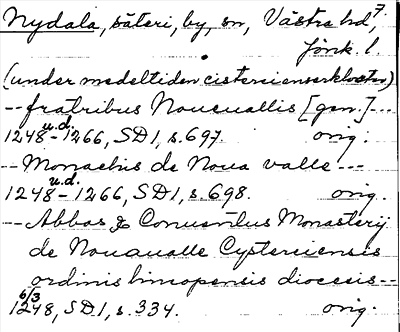 Nydala, säteri, by, sn, Västra hd,⁷
Jönk. l.
(under medeltiden cisterciensерkloster)
-- fratribus Noueuallis [gen.] ---
u.d.
1248 - 1266, SD 1, s. 697. orig.
-- Monachis de Noua valle ---
u.d.
1248 - 1266, SD 1, s. 698. orig.
-- Abbas & Conuentus Monasterij
de Nouaualle Cysterciensis
ordinis lincopensis diocesis --
6/3
1248, SD 1, s. 334. orig.